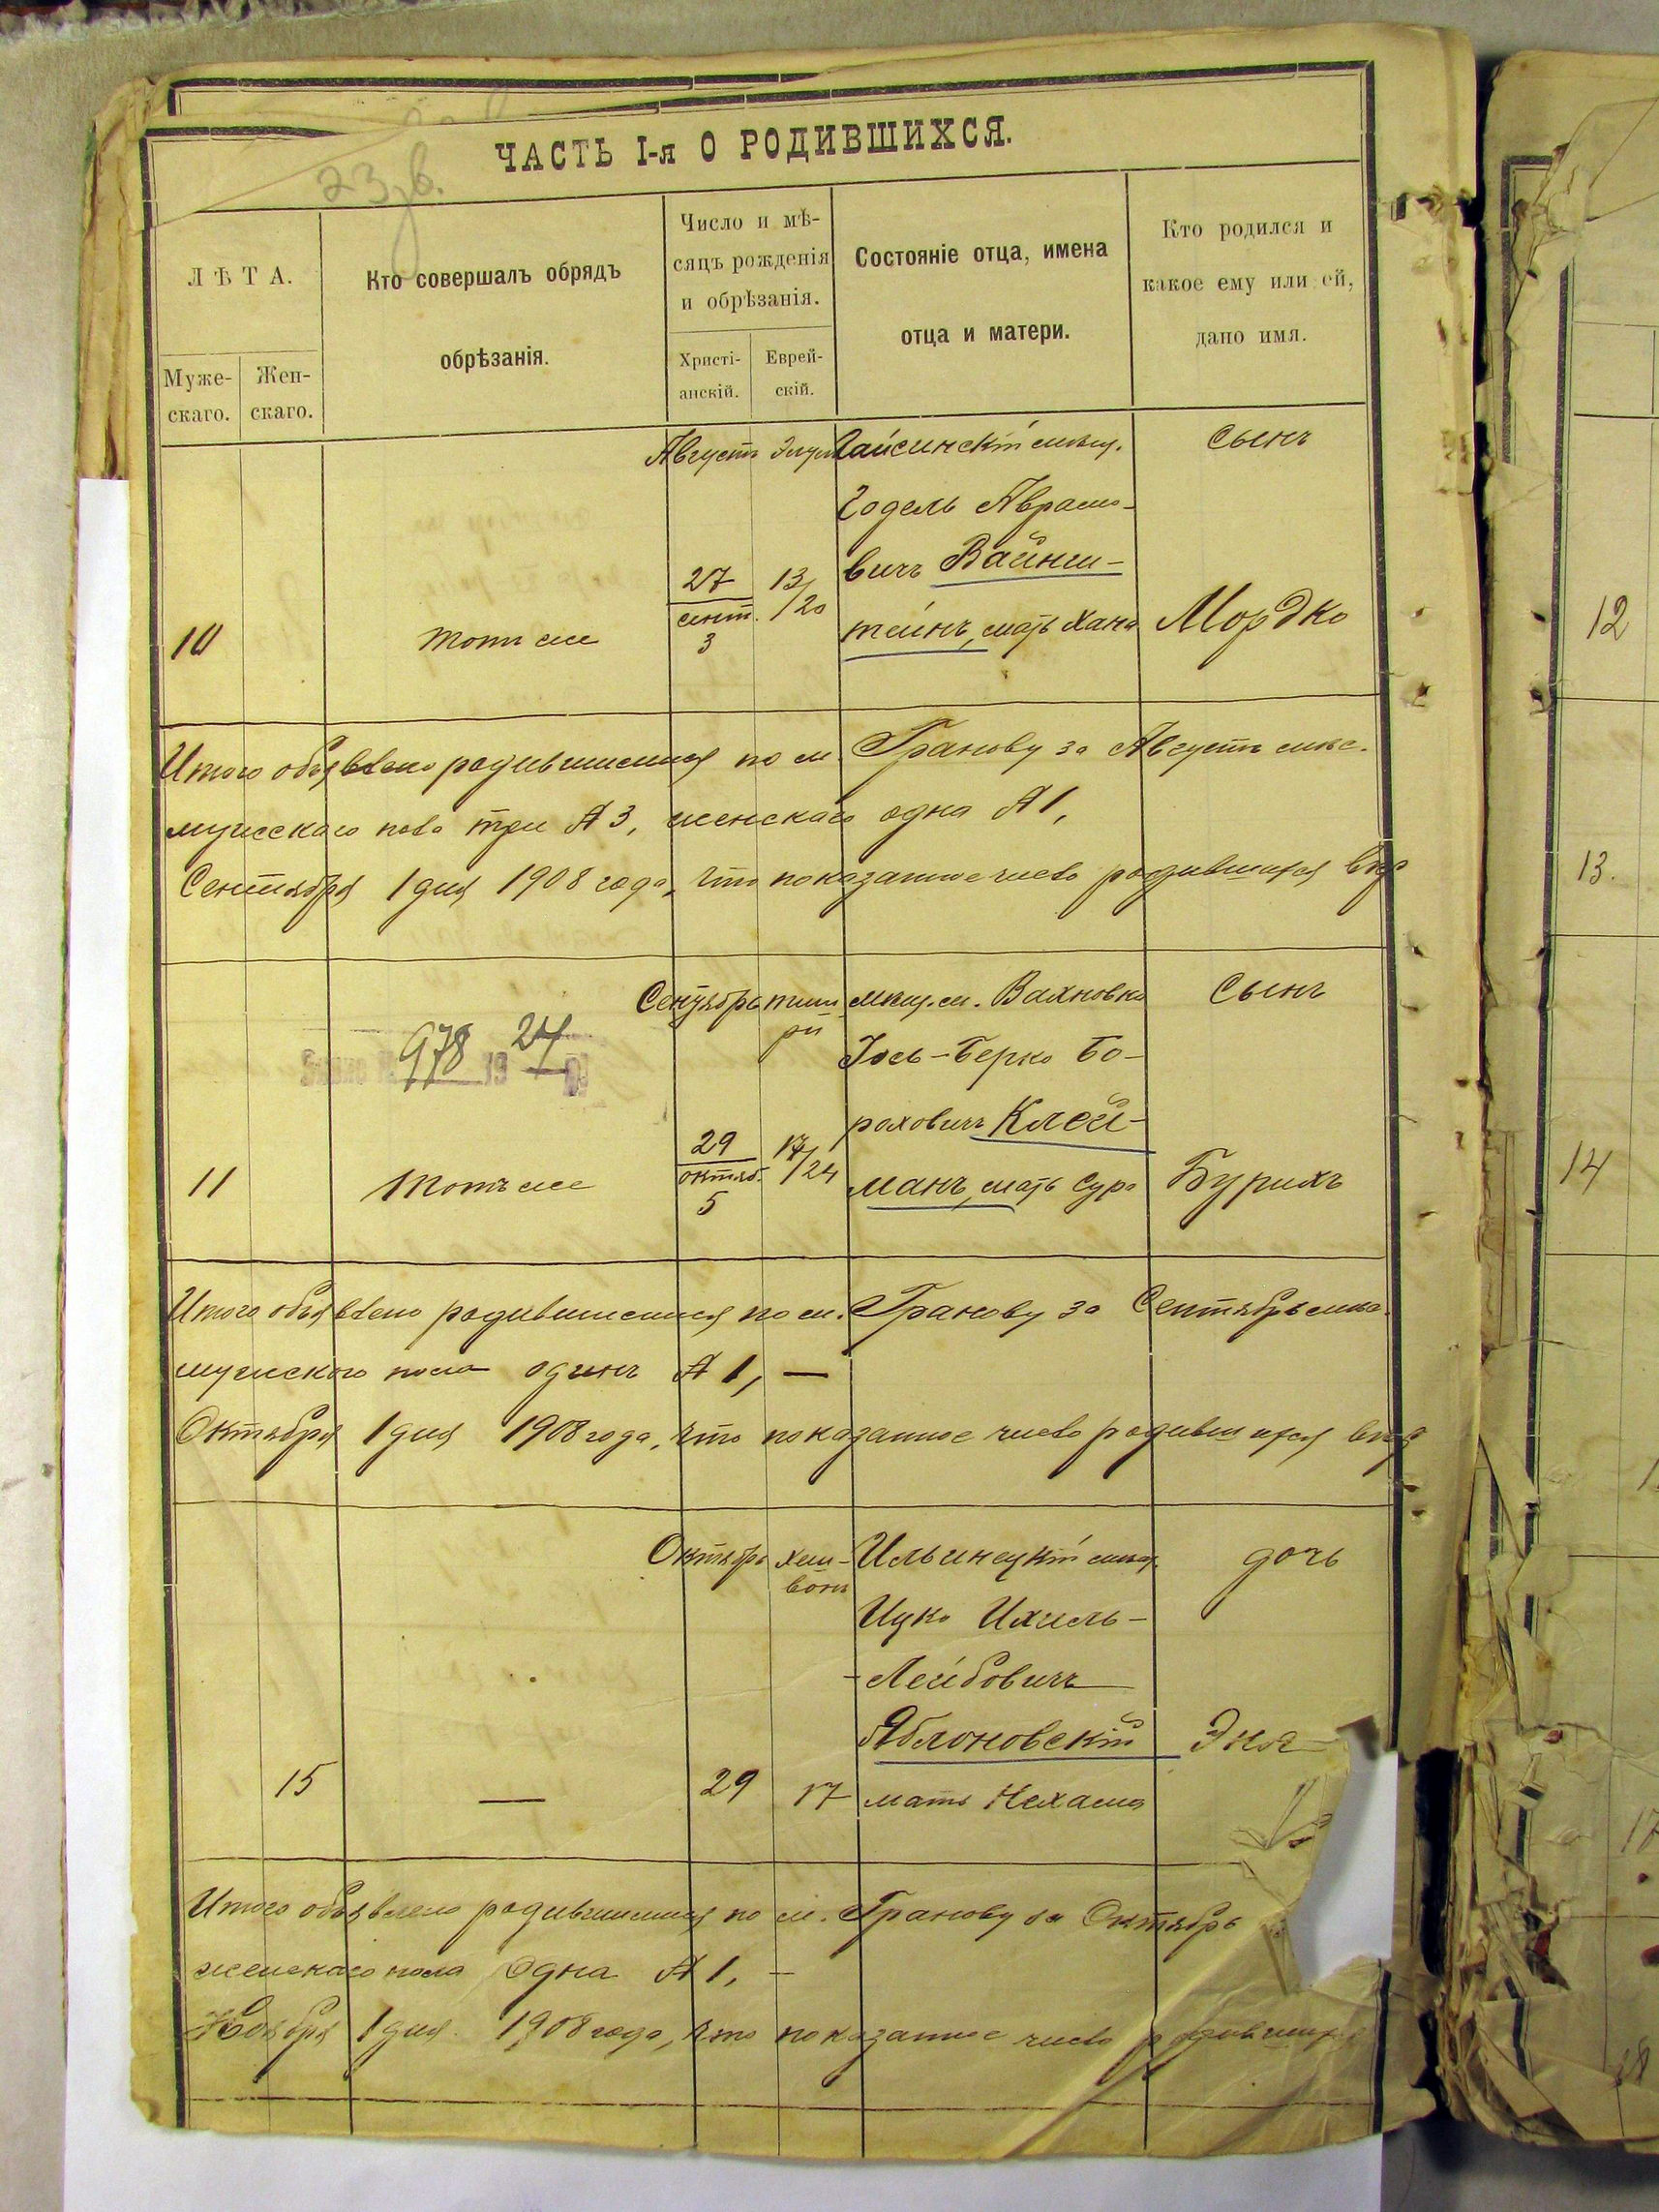 23 в.
ЧАСТЬ I-я О РОДИВШИХСЯ.
ЛѢТА.
Муже-
скаго.
Жен-
скаго.
Кто совершалъ обрядъ
обрѣзанія.
Число и мѣ-
сяцъ рожденія
и обрѣзанія.
Христі-
анскій.
Еврей-
скій.
Состояніе отца, имена
отца и матери.
Кто родился и
какое ему или ей,
дано имя.
Августъ Элул Гайсинскій мѣщ. Сынъ
Годель Аврамо-
27 13/20 вичъ Вайнш-
10 тотъ же сент. 3 тейнъ, мать Хана Мордко
Итого объявлено родившимися по м. Гранову за Августъ мѣс.
мужескаго пола три № 3, женскаго одна № 1,
Сентября 1 дня 1908 года, что показанное число родившихся
Сентябрь тиш- мѣщ. м. Вахновка Сынъ
ри
978 19 24
Іось-Берко Бо-
29 17/24 роховичъ Клей-
11 тотъ же октяб. 5 манъ, мать Сура Бурихъ
Итого объявлено родившимися по м. Гранову за Сентябрь мѣс.
мужского пола одинъ № 1, —
Октября 1 дня 1908 года, что показанное число родившихся
Октябрь хеш- Ильинецкій мѣщ. дочь
вонъ
Ицко Ихиль-
-Лейбовичъ
Яблоновскій Эня
15 — 29 17 мать Нехама
Итого объявлено родившимися по м. Гранову за Октябрь
женскаго пола одна № 1, —
Ноября 1 дня 1908 года, что показанное число родившихся
12
13.
14